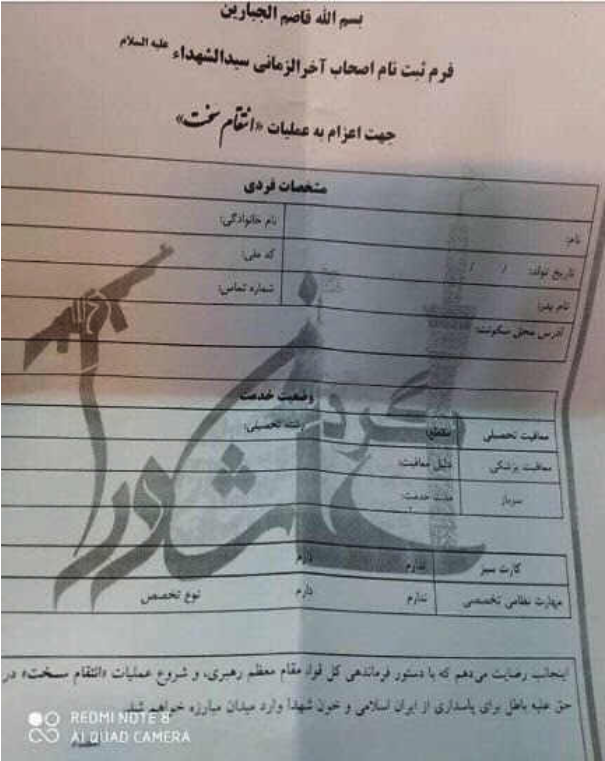 بسم الله قاصم الجبارین
فرم ثبت نام اصحاب آخرالزمانی سیدالشهداء علیه السلام
جهت اعزام به عملیات «انتقام سخت»
مشخصات فردی
نام: نام خانوادگی:
تاریخ تولد: / / کد ملی:
نام پدر: شماره تماس:
آدرس محل سکونت:
وضعیت خدمت
معافیت تحصیلی مقطع: رشته تحصیلی:
معافیت پزشکی دلیل معافیت:
سرباز مدت خدمت:
کارت سبز ندارم دارم
مهارت نظامی تخصصی ندارم دارم نوع تخصص
اینجانب رضایت می‌دهم که با دستور فرماندهی کل قوا، مقام معظم رهبری، و شروع عملیات «انتقام سخت» در
حق علیه باطل برای پاسداری از ایران اسلامی و خون شهدا وارد میدان مبارزه خواهم شد.
امضاء
گردان
عاشورا
REDMI NOTE 8
AI QUAD CAMERA